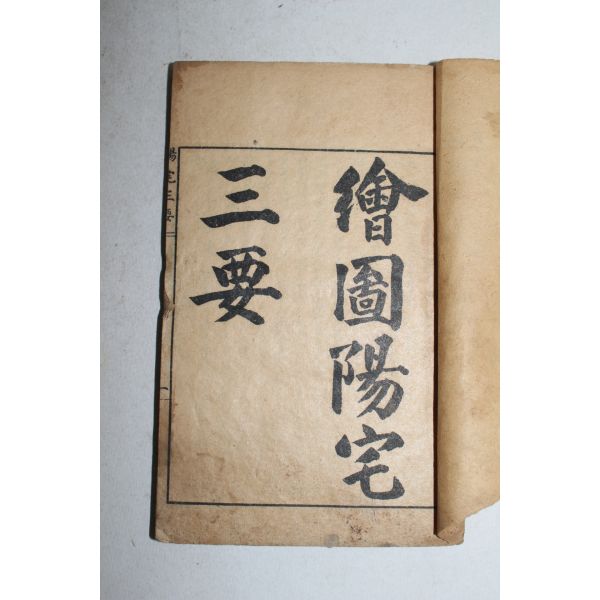 繪圖陽宅
三要
陽宅三要